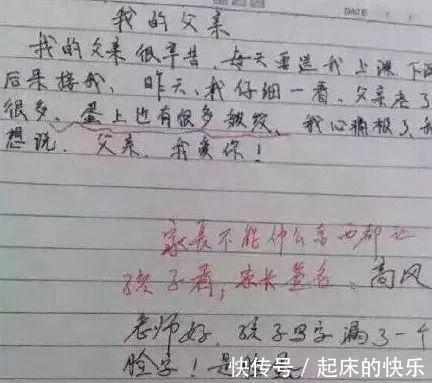 DATE
我的父亲
我的父亲很辛苦,每天要送我上课,下课
后来接我。昨天,我仔细一看,父亲老了
很多,蛋上也有很多皱纹。我心痛极了,我
想说,父亲,我爱你!
家长不能什么东西都让
孩子看,家长签名:高风
老师好,孩子写字漏了一个
脸字!是
快传号/起床的快乐